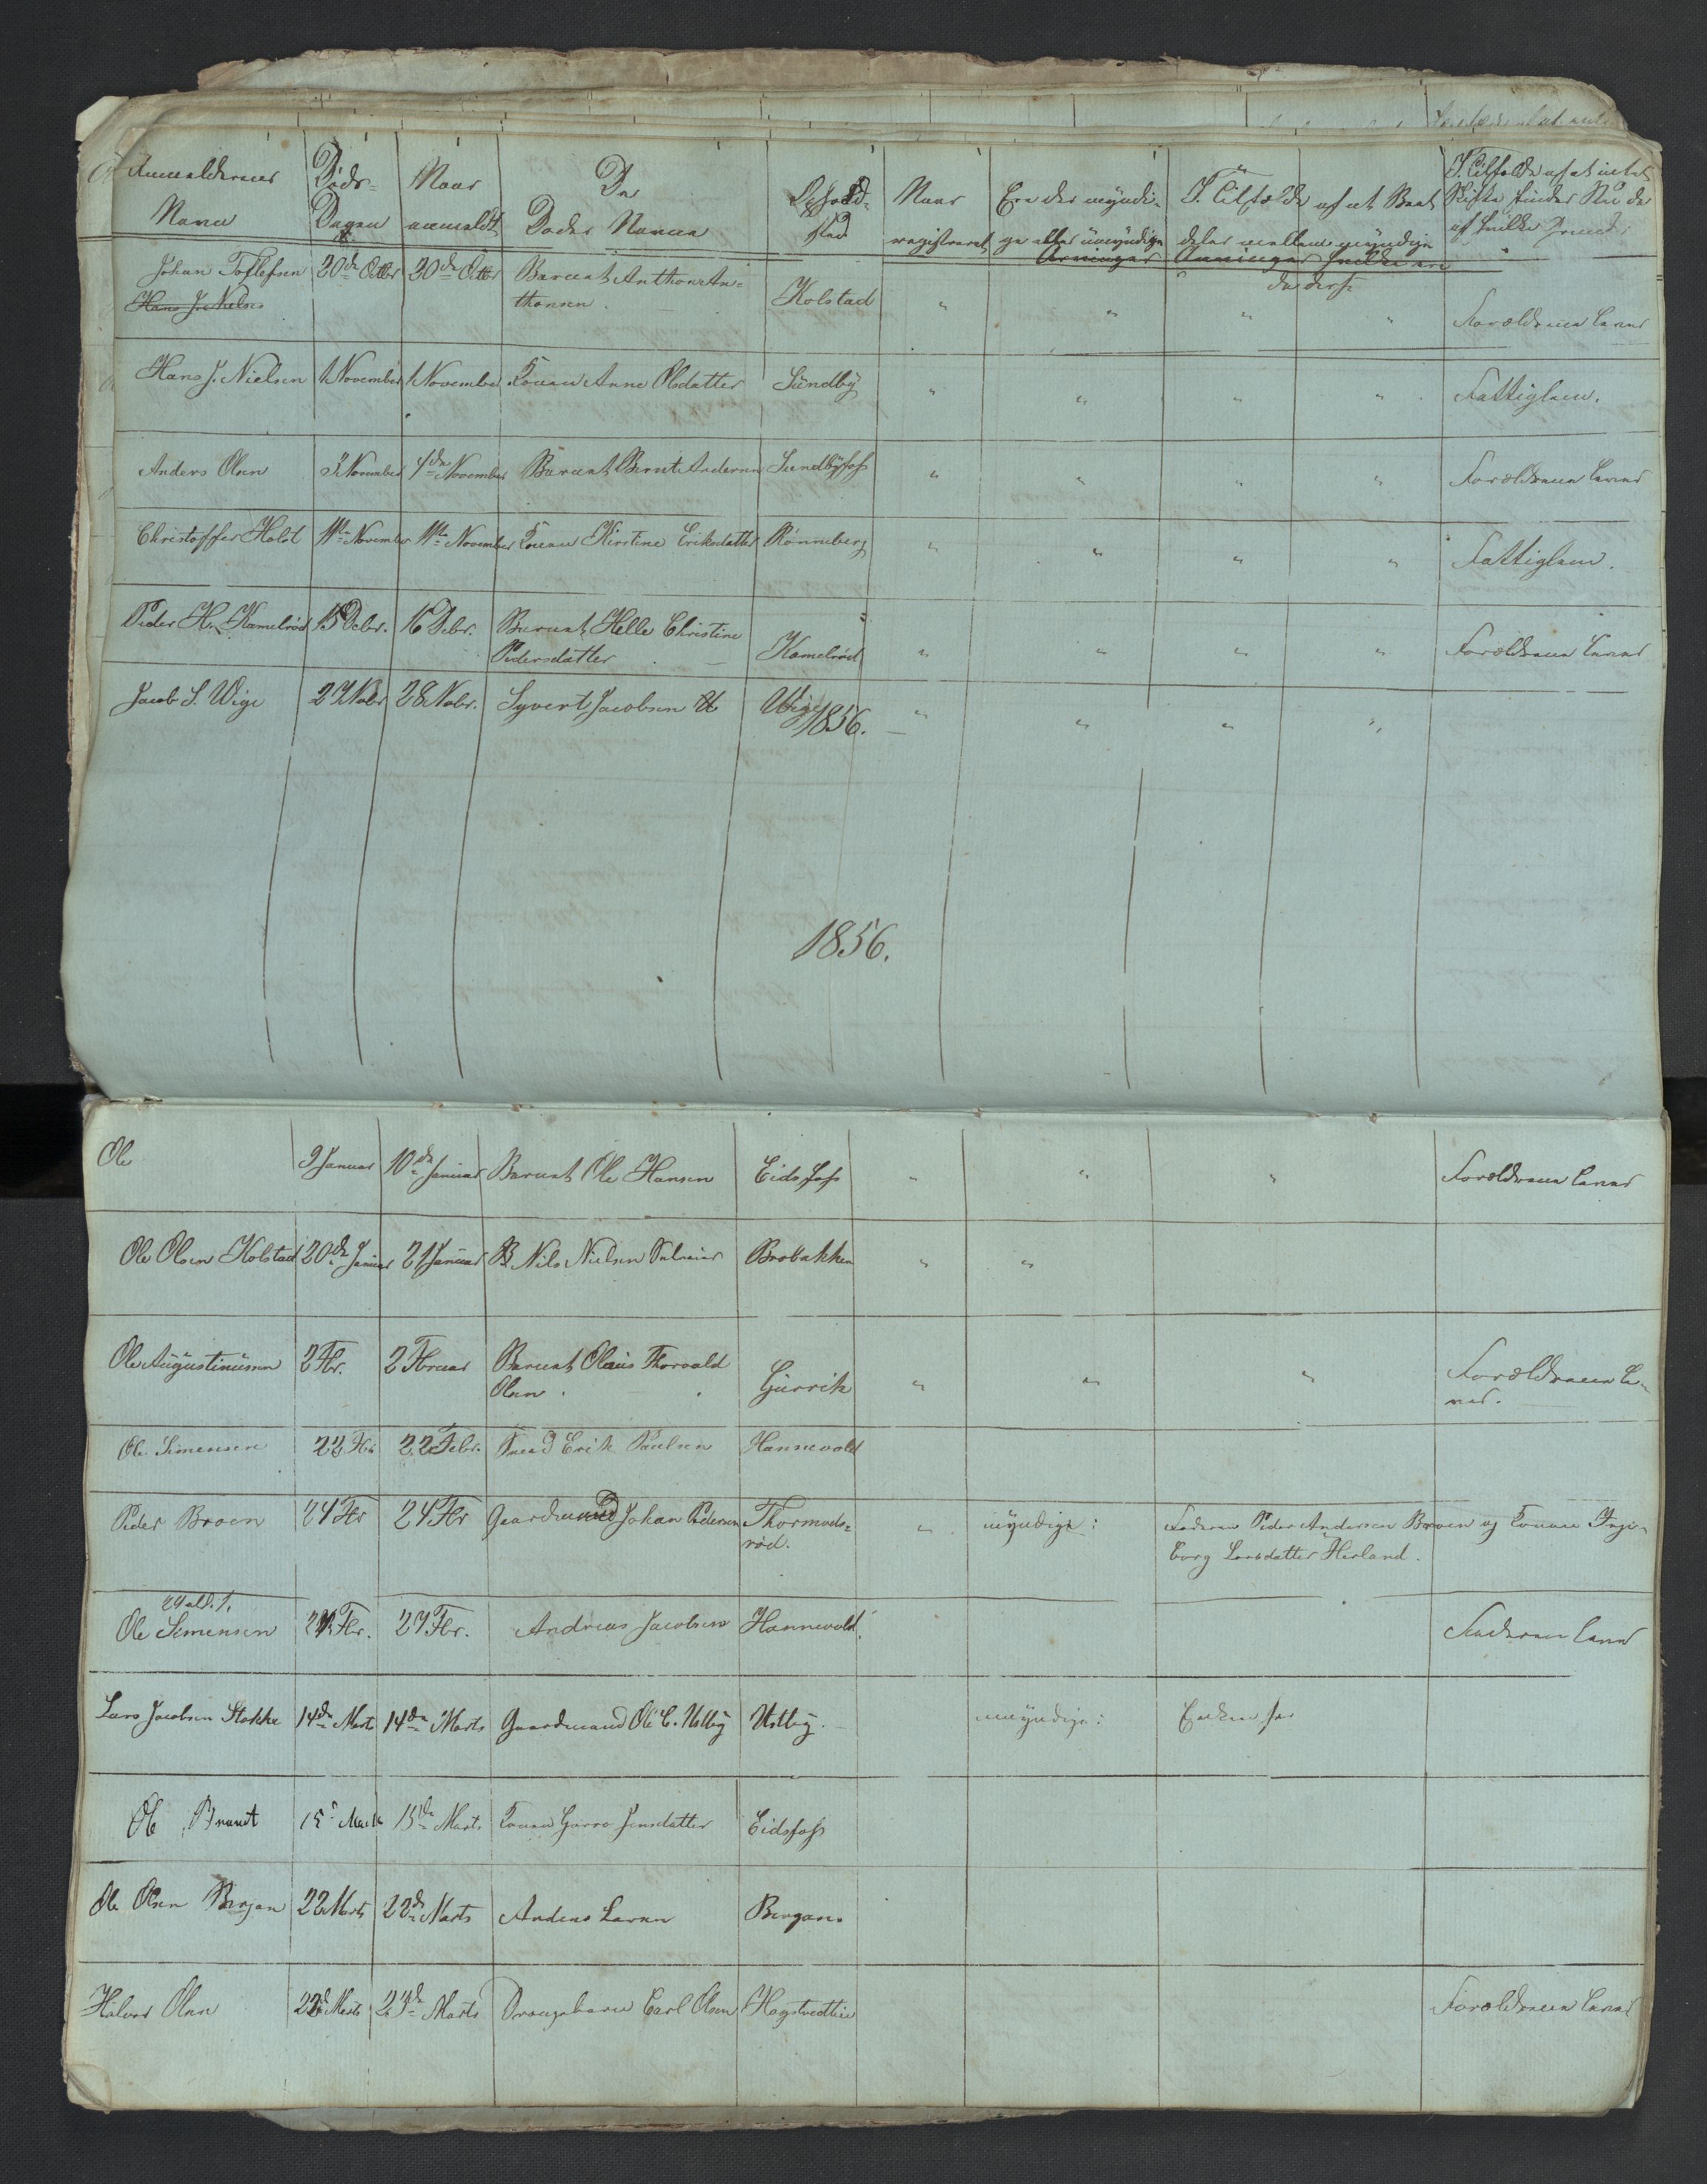 Anmelderens Navn | Døds- Dagen | Naar anmeldt | Den Dødes Navn | Opholdsted | Naar registreret | Ere der myndige eller umyndige Arvinger | I Tilfælde af at Boet deles mellem myndige Arvinger hvilke ere da disse | I Tilfælde af at intet Skifte finder Sted da af hvilken Grund
Johan Toflefsen | 30de Octbr | 30de Octbr | Barnet Anthon An=
Hans J. Nielsen | thonsen | Kolstad | " | " | " | " | Forældrene Lever
Hans J. Nielsen | 1 November | 1 November | Konen Anne Olsdatter | Sundby | " | " | " | " | Fattiglem.
Anders Olsen | 3 November | 4de November | Barnet Bernt Andersen | Sundbyfoss | " | " | " | " | Forældrene Lever
Christoffer Holst | 11te November | 11te November | Konen Kirstine Eriksdatter | Rønneberg | " | " | " | " | Fattiglem.
Peder H. Kamelrød | 15 Debr. | 16 Debr. | Barnet Helle Christine
Pedersdatter | Kamelrød | " | " | " | " | Forældrene Lever
Jacob S. Wige | 27 Nobr | 28 Nobr. | Syvert Jacobsen | Wige | " | " | " | "
1856.
1856.
Ole | 9 Januar | 10de Januar | Barnet Ole Hansen | Eidsfoss | " | " | " | Forældrene Lever
Ole Olsen Kolstad | 20de Januar | 21 Januar | Nils Nielsen | Brobakken | " | "
Ole Augustinusen | 2 Fbr. | 2 Februar | Barnet Olaus Thorvald
Olsen | Gurrik | " | " | " | Forældrene Le-
ver.
Ole Simensen | 22 Fbr | 22 Febr. | Erik Paulsen | Hannevold
Peder Broen | 24 Fbr | 24 Fbr | Gaardmand Johan Pedersen | Thormods=
rød. | " | myndige: | Faderen Peder Andersen Broen og Konen Inge-
borg Larsdatter Herland.
Ole Simensen | 27 Fbr. | 27 Fbr. | Andreas Jacobsen | Hannevold | Faderen Lever
Lars Jacobsen Stokke | 14de Marts | 14de Marts | Gaardmand Ole C. Ustby | Ustby. | myndige: | Enken
Ole Brandt | 15 Marts | 15de Marts | Konen Jensdatter | Eidsfoss
Ole Olsen Bergan | 22 Marts | 22de Marts | Anders Larsen | Bergan.
Halvor Olsen | 22de Marts | 23de Marts | Drengebarn Carl Olsen | Hagtvedteie | Forældrene Lever